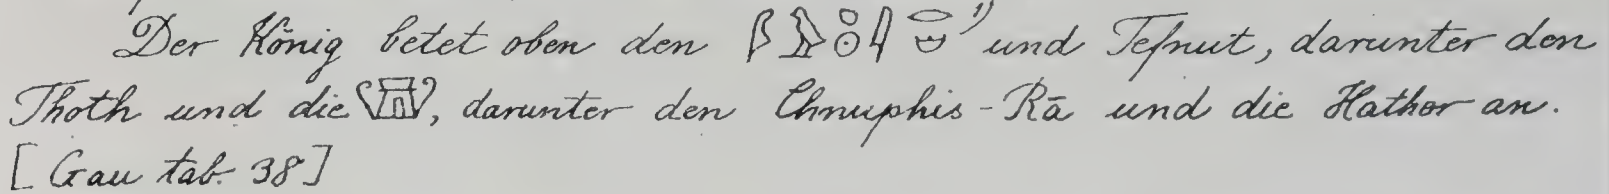 Der König betet oben den ¹⁾ und Tefnut, darunter den
Thoth und die , darunter den Chnuphis-Rā und die Hathor an.
[Gau tab. 38]